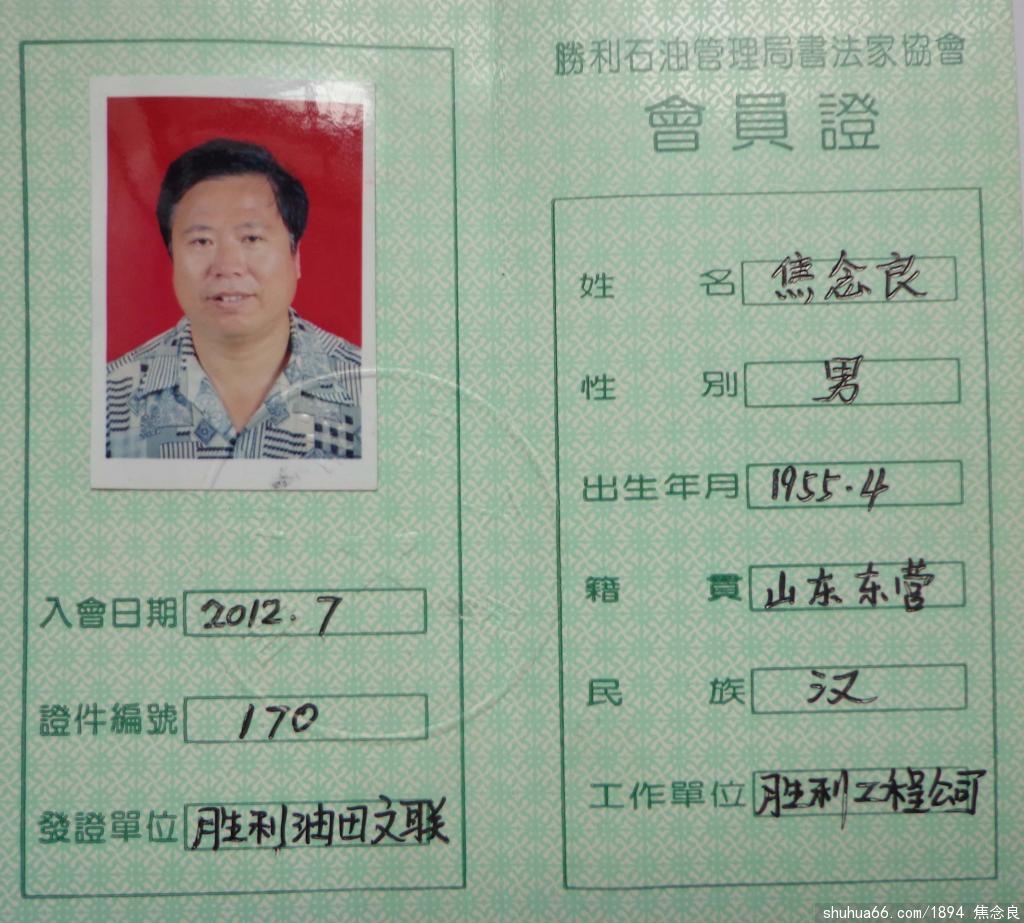 入會日期 2012.7
證件編號 170
發證單位 胜利油田文联
勝利石油管理局書法家協會
會員證
姓名 焦念良
性別 男
出生年月 1955.4
籍貫 山东东营
民族 汉
工作單位 胜利工程公司
shuhua66.com/1894 焦念良